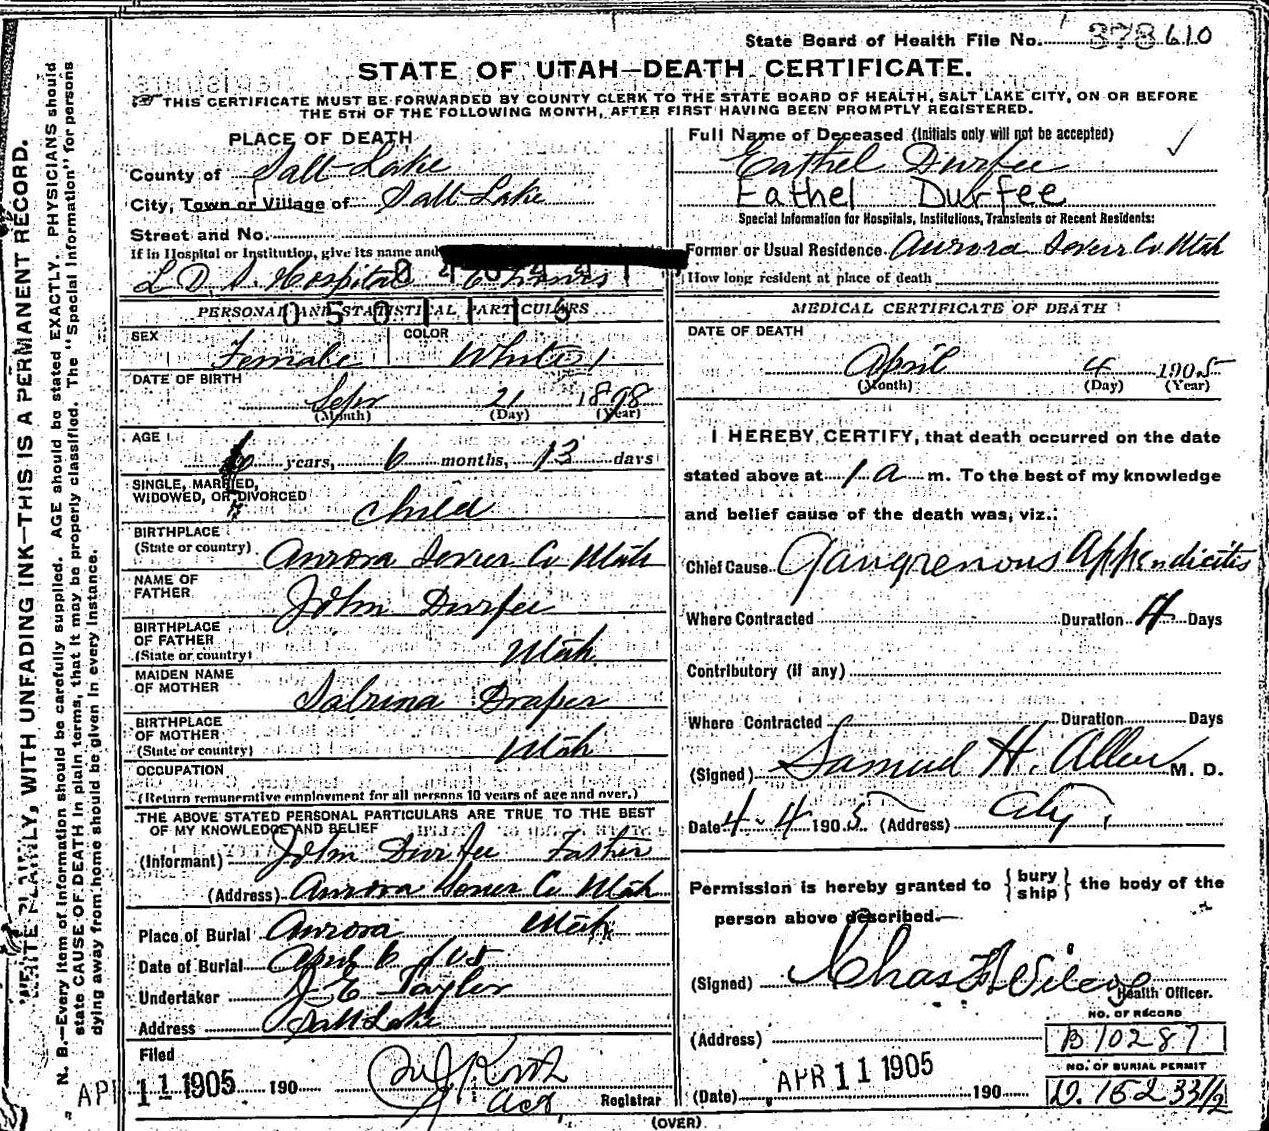 State Board of Health File No. 378 610
STATE OF UTAH—DEATH CERTIFICATE.
THIS CERTIFICATE MUST BE FORWARDED BY COUNTY CLERK TO THE STATE BOARD OF HEALTH, SALT LAKE CITY, ON OR BEFORE
THE 5TH OF THE FOLLOWING MONTH, AFTER FIRST HAVING BEEN PROMPTLY REGISTERED.
WRITE PLAINLY, WITH UNFADING INK—THIS IS A PERMANENT RECORD.
N. B.—Every item of information should be carefully supplied. AGE should be stated EXACTLY. PHYSICIANS should
state CAUSE OF DEATH in plain terms, that it may be properly classified. The "Special Information" for persons
dying away from home should be given in every instance.
PLACE OF DEATH
County of Salt Lake
City, Town or Village of Salt Lake
Street and No.
If in Hospital or Institution, give its name and
L D S Hospital
PERSONAL AND STATISTICAL PARTICULARS
SEX Female COLOR White
DATE OF BIRTH
Sepr 21 1898
(Month) (Day) (Year)
AGE 6 years, 6 months, 13 days
SINGLE, MARRIED,
WIDOWED, OR DIVORCED
Child
BIRTHPLACE
(State or country) Aurora Sevier Co Utah
NAME OF
FATHER John Durfee
BIRTHPLACE
OF FATHER
(State or country) Utah
MAIDEN NAME
OF MOTHER Sabrina Draper
BIRTHPLACE
OF MOTHER
(State or country) Utah
OCCUPATION
(Return remunerative employment for all persons 10 years of age and over.)
THE ABOVE STATED PERSONAL PARTICULARS ARE TRUE TO THE BEST
OF MY KNOWLEDGE AND BELIEF
(Informant) John Durfee Father
(Address) Aurora Sevier Co Utah
Place of Burial Aurora Utah
Date of Burial April 6 / 05
Undertaker E Taylor
Address Salt Lake
Filed
APR 11 1905 190 Registrar
Full Name of Deceased (Initials only will not be accepted)
Eathel Durfee
Eathel Durfee
Special Information for Hospitals, Institutions, Transients or Recent Residents:
Former or Usual Residence Aurora Sevier Co Utah
How long resident at place of death
MEDICAL CERTIFICATE OF DEATH
DATE OF DEATH
April 4 1905
(Month) (Day) (Year)
I HEREBY CERTIFY, that death occurred on the date
stated above at 1 a m. To the best of my knowledge
and belief cause of the death was, viz.:
Chief Cause Gangrenous Appendicitis
Where Contracted Duration 4 Days
Contributory (if any)
Where Contracted Duration Days
(Signed) Samuel H. Allen M. D.
Date 4-4 1905 (Address) City.
Permission is hereby granted to { bury ship } the body of the
person above described.
(Signed) Chas Health Officer.
NO. OF RECORD
(Address) B 10287
NO. OF BURIAL PERMIT
(Date) APR 11 1905 190 D. 152 33 1/2
(OVER)